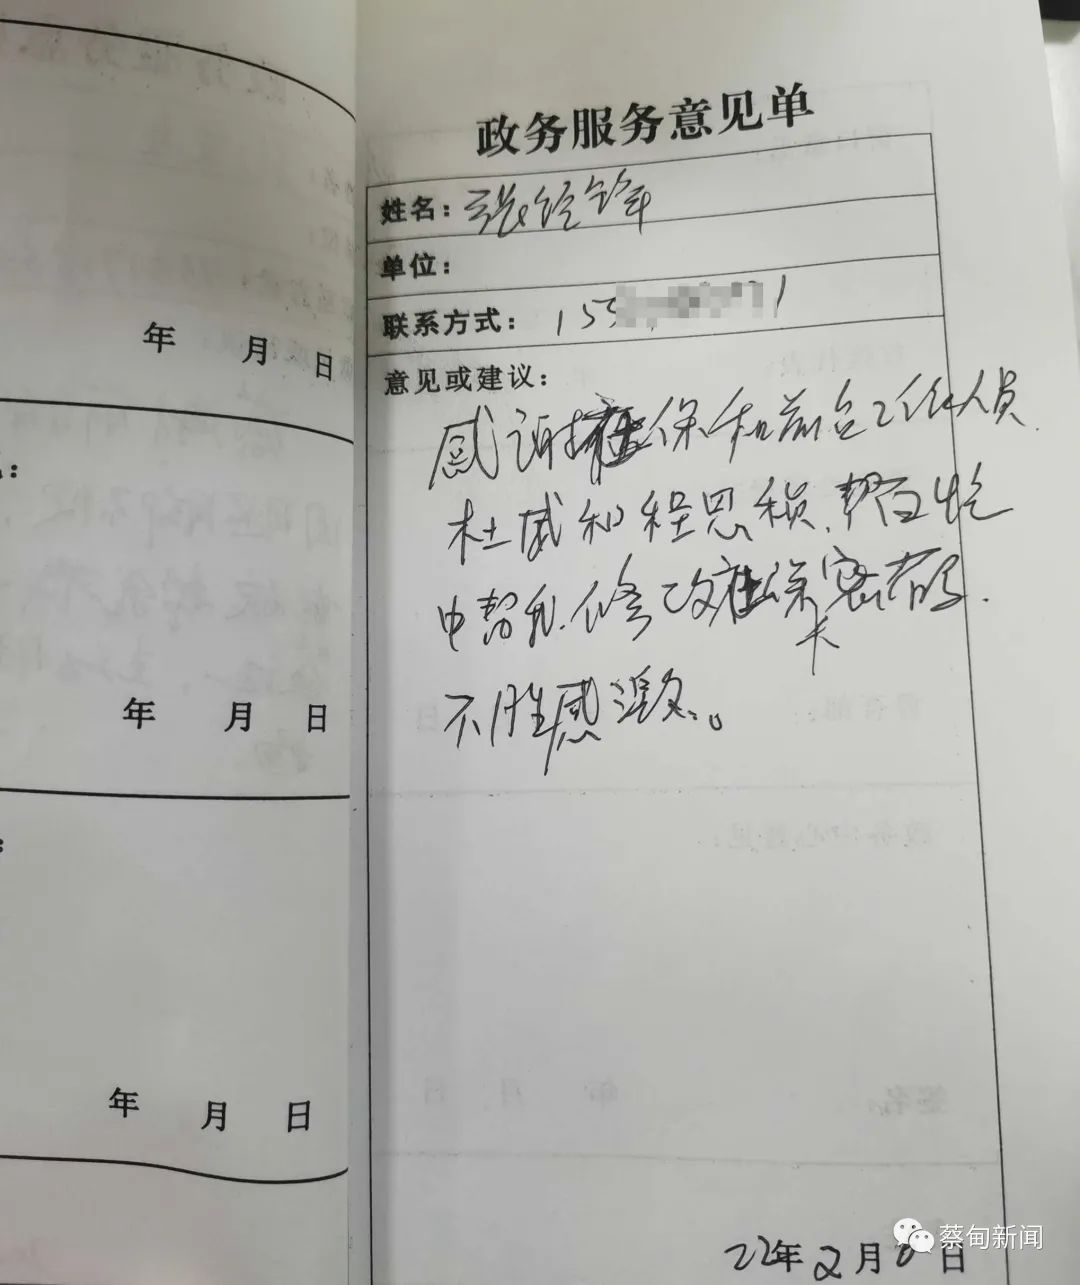 年 月 日
年 月 日
年 月 日
政务服务意见单
姓名：张经锋
单位：
联系方式：155 1
意见或建议：
感谢社保和前台工作人员
杜威和程思积，帮百忙
中帮我修改社保卡密码.
不胜感激。
22年2月8日
蔡甸新闻